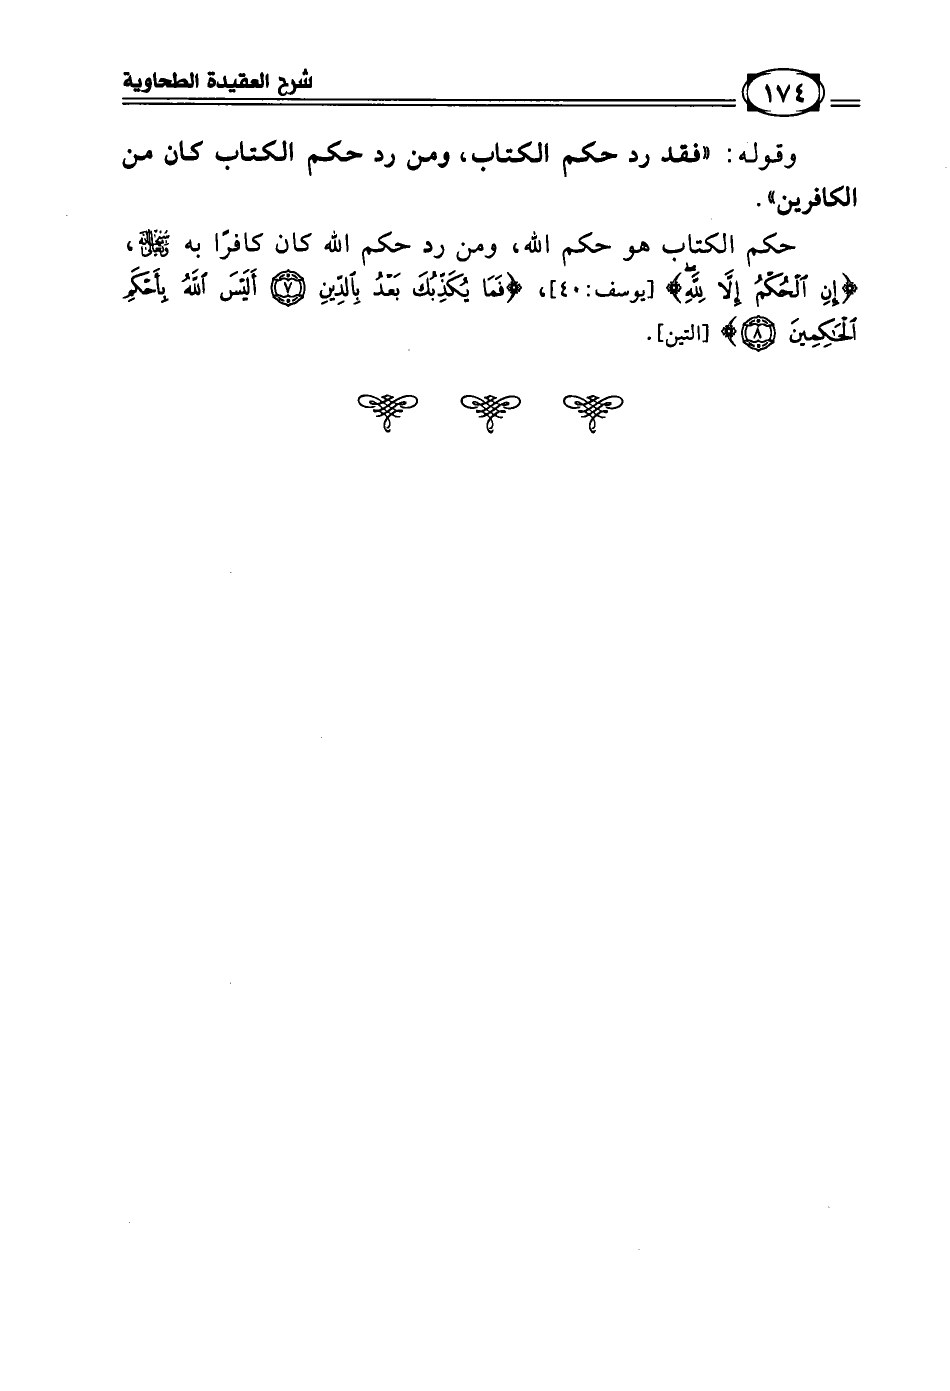 ١٧٤ شرح العقيدة الطحاوية
وقوله: «فقد رد حكم الكتاب، ومن رد حكم الكتاب كان من
الكافرين».
حكم الكتاب هو حكم الله، ومن رد حكم الله كان كافرًا به ﷾،
﴿إِنِ ٱلْحُكْمُ إِلَّا لِلَّهِۖ﴾ [يوسف:٤٠]، ﴿فَمَا يُكَذِّبُكَ بَعْدُ بِٱلدِّينِ ٧ أَلَيْسَ ٱللَّهُ بِأَحْكَمِ
ٱلْحَـٰكِمِينَ ٨﴾ [التين].